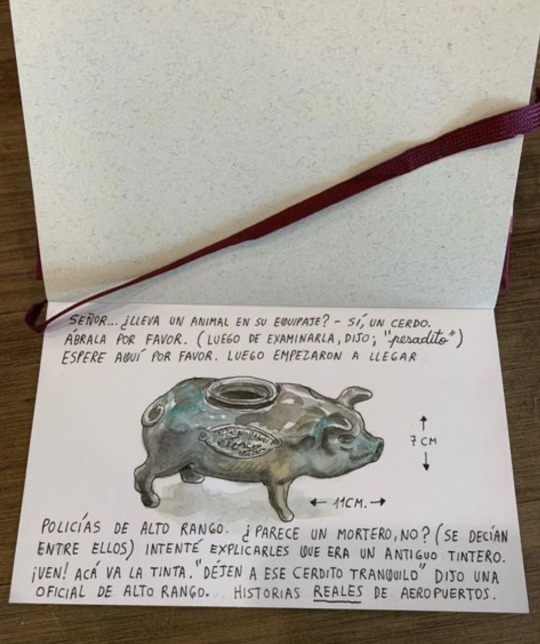 SEÑOR... ¿LLEVA UN ANIMAL EN SU EQUIPAJE? - SÍ, UN CERDO.
ÁBRALA POR FAVOR. (LUEGO DE EXAMINARLA, DIJO; "pesadito")
ESPERE AQUÍ POR FAVOR. LUEGO EMPEZARON A LLEGAR
7 CM
11 CM.
POLICÍAS DE ALTO RANGO. ¿PARECE UN MORTERO, NO? (SE DECÍAN
ENTRE ELLOS) INTENTÉ EXPLICARLES QUE ERA UN ANTIGUO TINTERO.
¡VEN! ACÁ VA LA TINTA. "DÉJEN A ESE CERDITO TRANQUILO" DIJO UNA
OFICIAL DE ALTO RANGO. HISTORIAS REALES DE AEROPUERTOS.